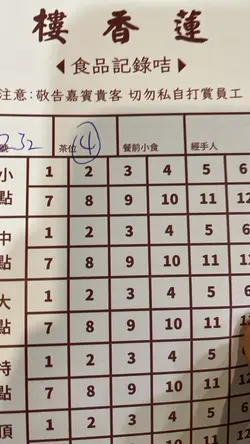 樓香蓮
◀食品記錄咭▶
注意: 敬告嘉賓貴客 切勿私自打賞員工
232 茶位 4 餐前小食 經手人
小點 1 2 3 4 5 6
7 8 9 10 11
中點 1 2 3 4 5 6
7 8 9 10 11 12
大點 1 2 3 4 5 6
7 8 9 10 11 12
特點 1 2 3 4 5 6
7 8 9 10 11 12
頂 1 2 3 4 5 6